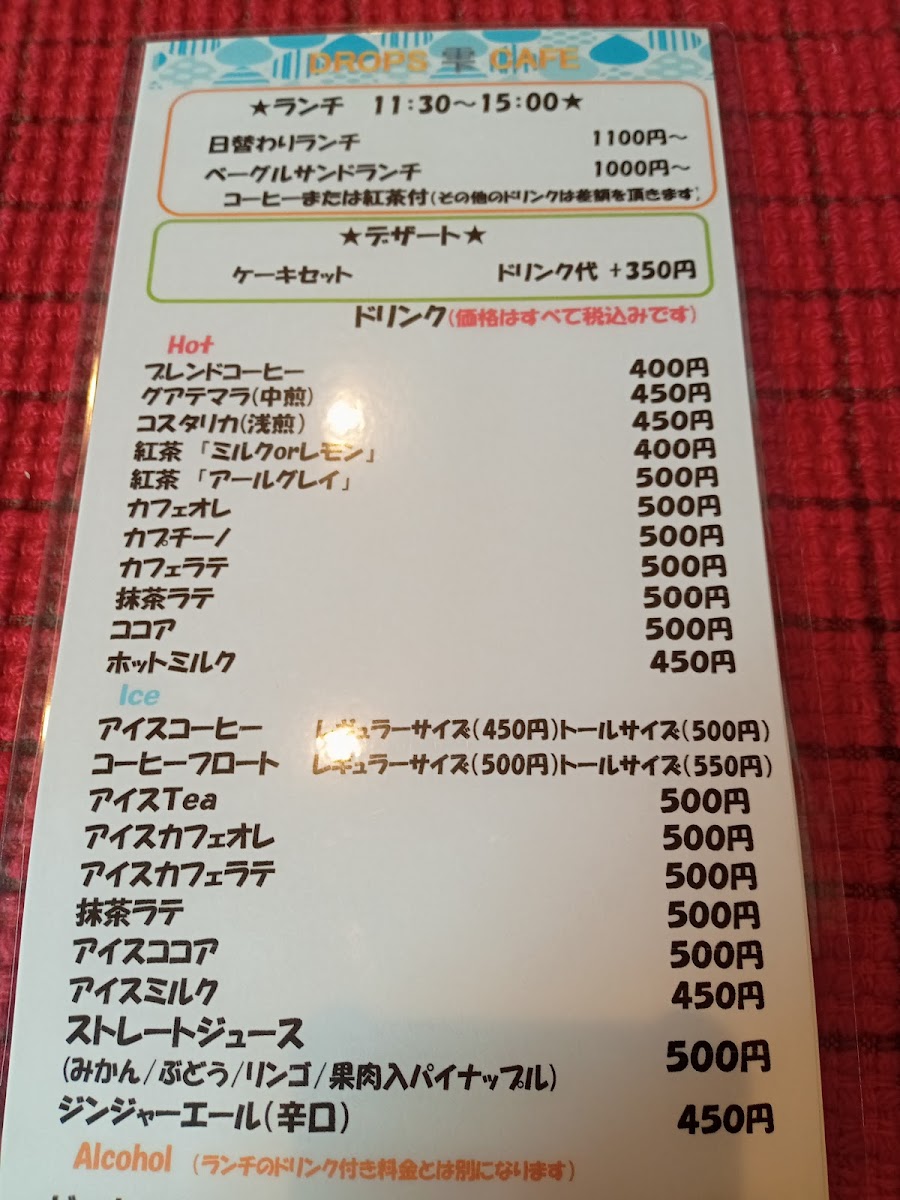 DROPS 雫 CAFE
★ランチ 11:30～15:00★
日替わりランチ 1100円～
ベーグルサンドランチ 1000円～
コーヒーまたは紅茶付(その他のドリンクは差額を頂きます)
★デザート★
ケーキセット ドリンク代 +350円
ドリンク(価格はすべて税込みです)
Hot
ブレンドコーヒー 400円
グアテマラ(中煎) 450円
コスタリカ(浅煎) 450円
紅茶「ミルクorレモン」 400円
紅茶「アールグレイ」 500円
カフェオレ 500円
カプチーノ 500円
カフェラテ 500円
抹茶ラテ 500円
ココア 500円
ホットミルク 450円
Ice
アイスコーヒー レギュラーサイズ(450円)トールサイズ(500円)
コーヒーフロート レギュラーサイズ(500円)トールサイズ(550円)
アイスTea 500円
アイスカフェオレ 500円
アイスカフェラテ 500円
抹茶ラテ 500円
アイスココア 500円
アイスミルク 450円
ストレートジュース
(みかん/ぶどう/リンゴ/果肉入パイナップル) 500円
ジンジャーエール(辛口) 450円
Alcohol (ランチのドリンク付き料金とは別になります)